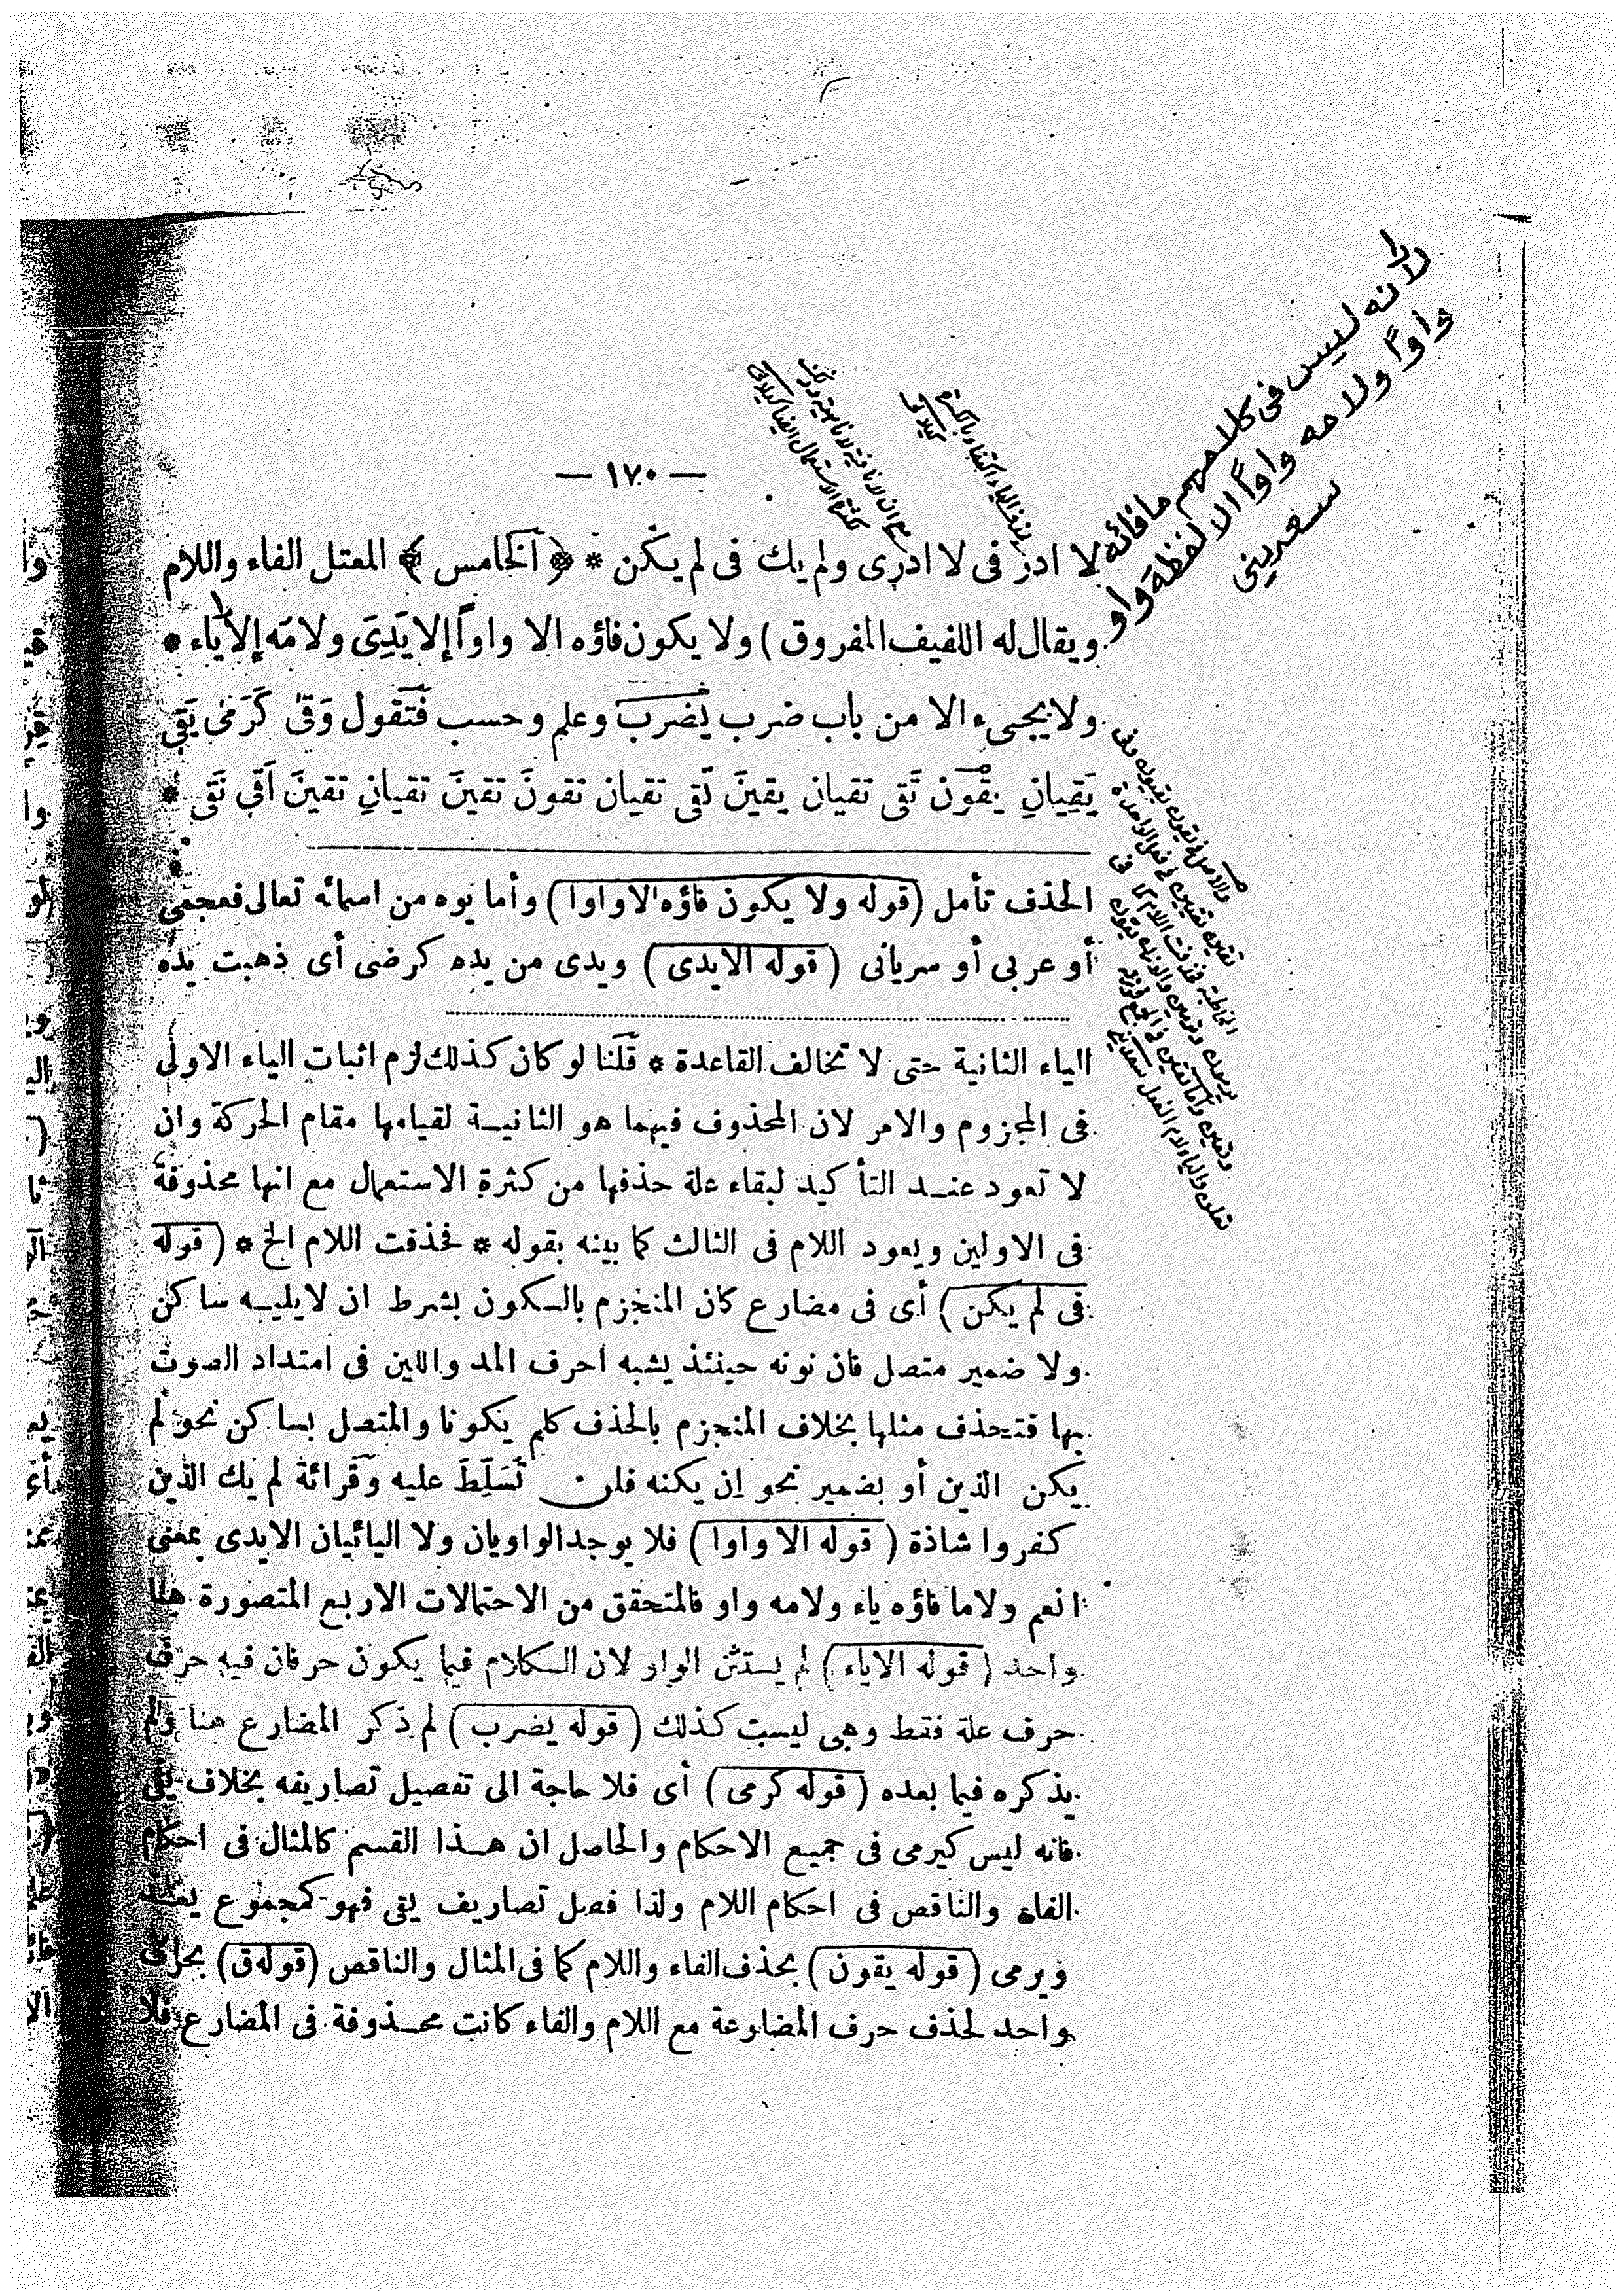 لانه ليس فى كلامهم ما فائه
واواً ولامه واواً الا لفظة واو
سعدينى
— ١٧٠ —
لا ادر فى لا ادرى ولم يك فى لم يكن * ﴿ الخامس ﴾ المعتل الفاء واللام
ويقال له اللفيف المفروق ) ولا يكون فاؤه الا واواً إلا يَدِىَ ولامَه إلا ياء *
ولا يجىء الا من باب ضرب يضرب وعلم وحسب فتقول وَقىٰ كَرَمىٰ يَقى
يَقِيانِ يقُون تَقى تقيان يقينَ تَقى تقيان تقونَ تقينَ تقيانِ تقينَ اَقى نَقى *
الحذف تأمل (قوله ولا يكون فاؤه الا واوا) وأما يوه من اسمائه تعالى فعجمى
أو عربى أو سريانى (قوله الا يدى) ويدى من يده كرضى أى ذهبت يده
الياء الثانية حتى لا تخالف القاعدة * قلنا لو كان كذلك لزم اثبات الياء الاولى
فى المجزوم والامر لان المحذوف فيهما هو الثانية لقيامها مقام الحركة وان
لا تعود عند التأكيد لبقاء علة حذفها من كثرة الاستعمال مع انها محذوفة
فى الاولين ويعود اللام فى الثالث كما بينه بقوله * فحذفت اللام الخ * (قوله
فى لم يكن) أى فى مضارع كان المنجزم بالسكون بشرط ان لا يليه ساكن
ولا ضمير متصل فان نونه حينئذ يشبه احرف المد واللين فى امتداد الصوت
بها فتحذف مثلها بخلاف المنجزم بالحذف كلم يكونا والمتصل بساكن نحو لم
يكن الذين أو بضمير نحو إن يكنه فلن تسَلَّطَ عليه وقرائة لم يك الذين
كفروا شاذة (قوله الا واوا) فلا يوجد الواويان ولا اليائيان الا يدى بمعنى
انعم ولا ما فاؤه ياء ولامه واو فالمتحقق من الاحتمالات الاربع المتصورة هنا
واحد (قوله الا ياء) لم يستثن الواو لان الكلام فيما يكون حرفان فيه حرف
حرف علة فقط وهى ليست كذلك (قوله يضرب) لم ذكر المضارع هنا ولم
يذكره فيما بعده (قوله كرمى) أى فلا حاجة الى تفصيل تصاريفه بخلاف يقى
فانه ليس كيرمى فى جميع الاحكام والحاصل ان هذا القسم كالمثال فى احكام
الفاء والناقص فى احكام اللام ولذا فصل تصاريف يقى فهو كمجموع يعد
ويرمى (قوله يقون) بحذف الفاء واللام كما فى المثال والناقص (قوله ق) بحرف
واحد لحذف حرف المضارعة مع اللام والفاء كانت محذوفة فى المضارع فلا